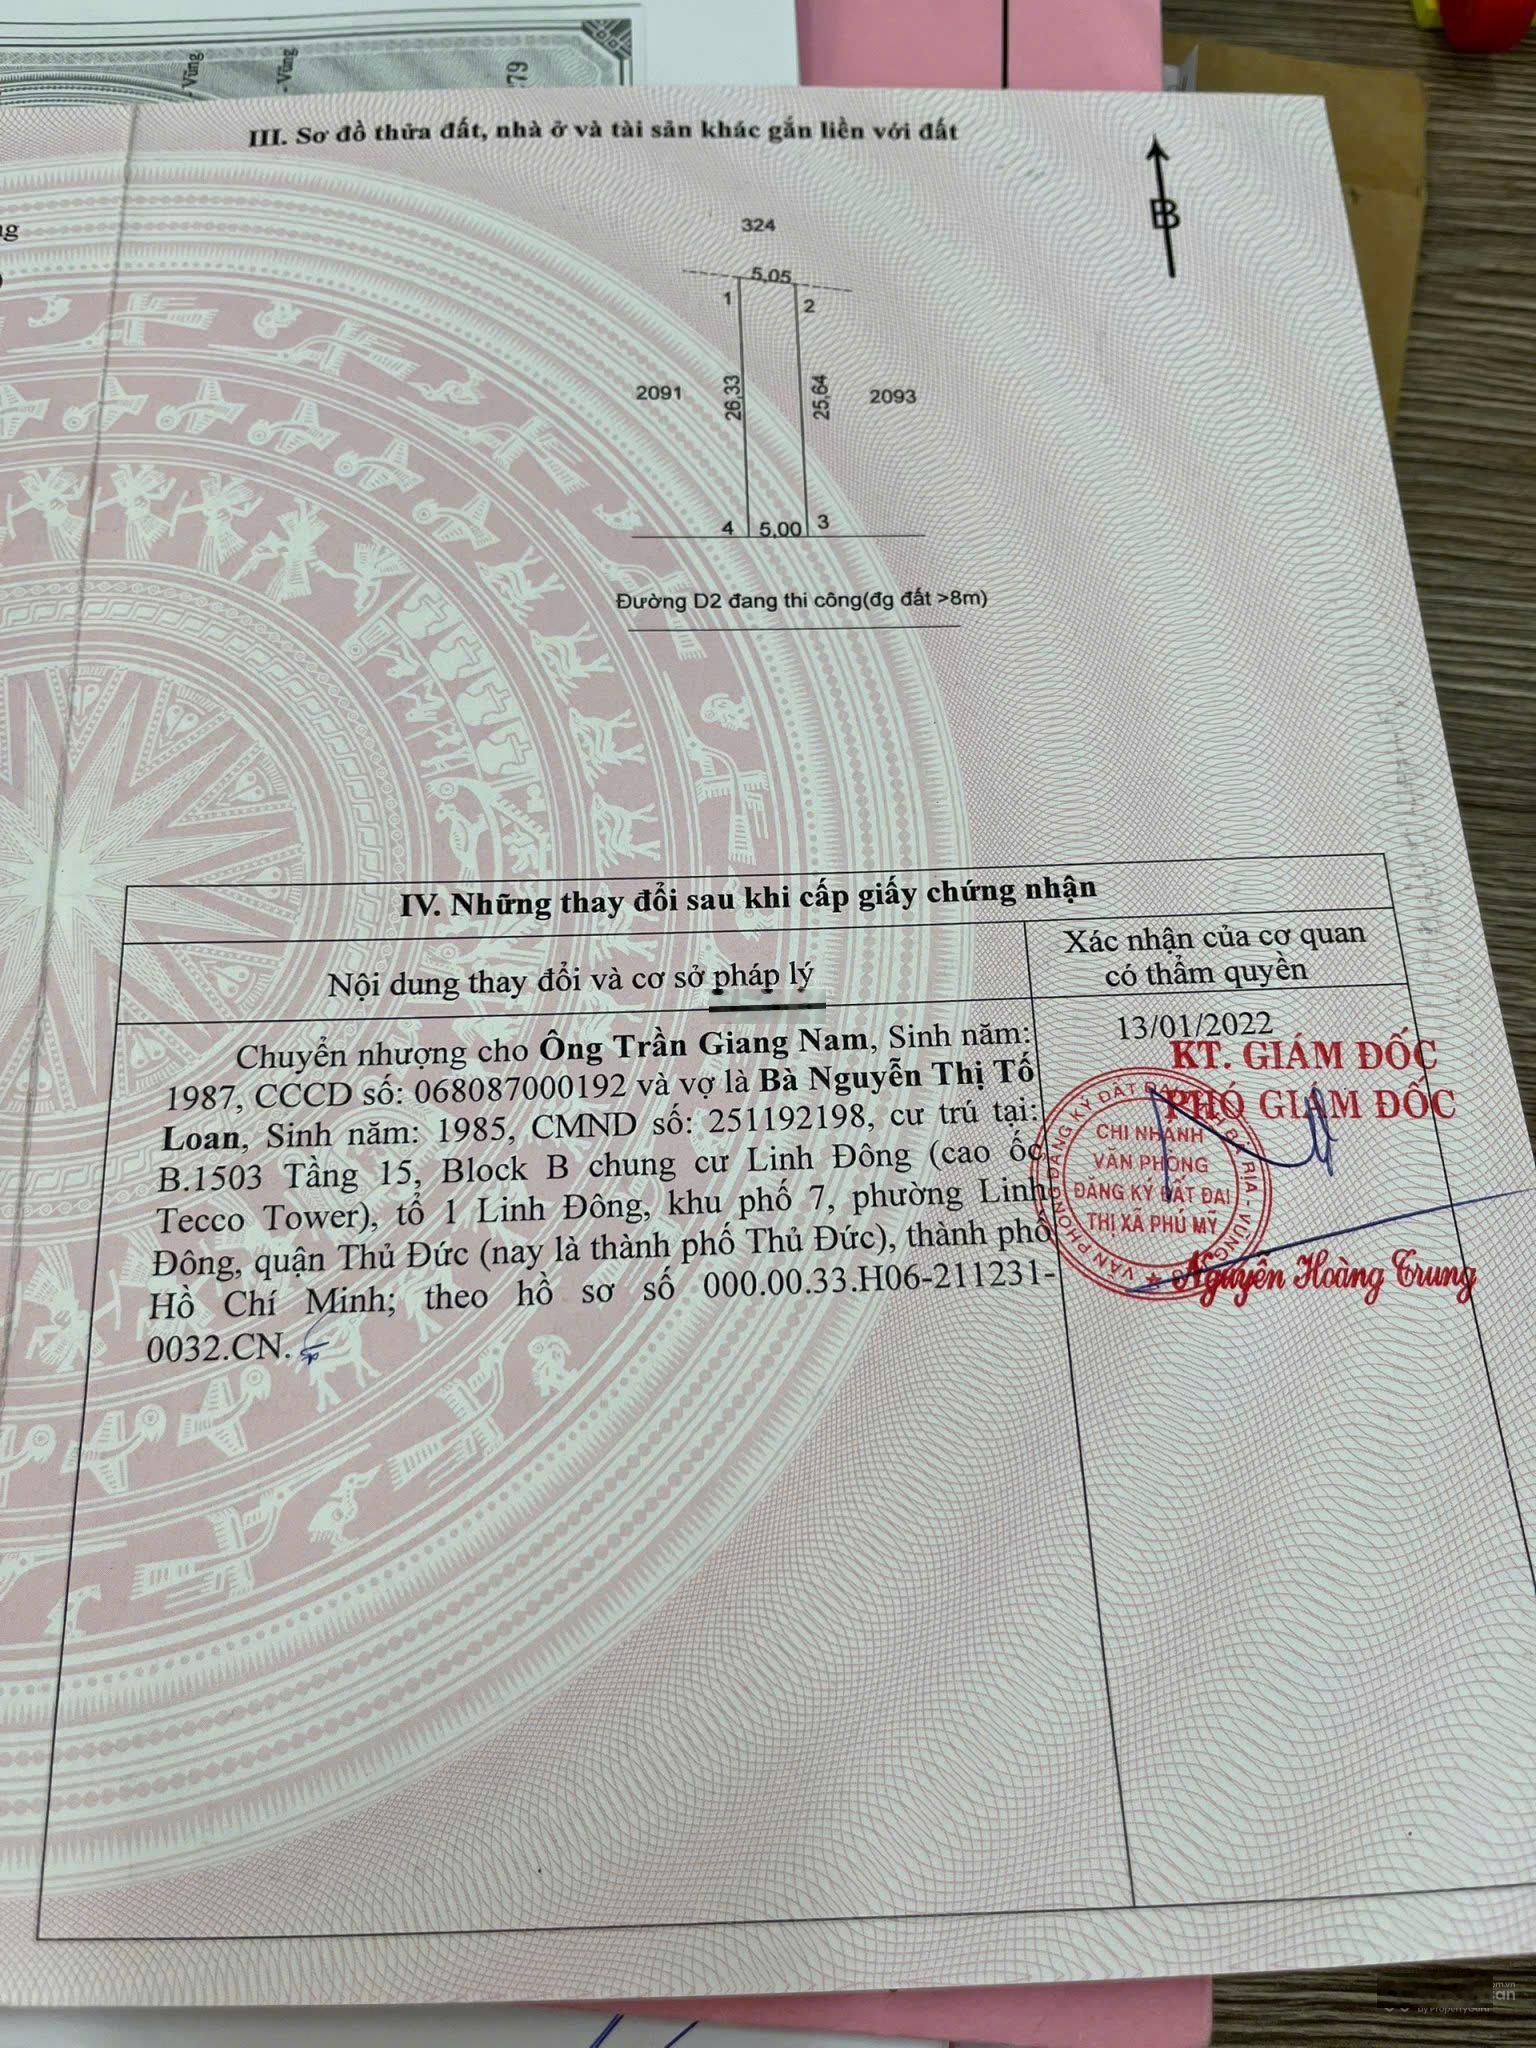 - Vũng
- Vũng
79
III. Sơ đồ thửa đất, nhà ở và tài sản khác gắn liền với đất
B
324
5,05
1
2
2091
26,33
25,64
2093
4
5,00
3
Đường D2 đang thi công(đg đất >8m)
IV. Những thay đổi sau khi cấp giấy chứng nhận
Nội dung thay đổi và cơ sở pháp lý
Xác nhận của cơ quan
có thẩm quyền
Chuyển nhượng cho Ông Trần Giang Nam, Sinh năm:
1987, CCCD số: 068087000192 và vợ là Bà Nguyễn Thị Tố
Loan, Sinh năm: 1985, CMND số: 251192198, cư trú tại:
B.1503 Tầng 15, Block B chung cư Linh Đông (cao ốc
Tecco Tower), tổ 1 Linh Đông, khu phố 7, phường Linh
Đông, quận Thủ Đức (nay là thành phố Thủ Đức), thành phố
Hồ Chí Minh; theo hồ sơ số 000.00.33.H06-211231-
0032.CN.
13/01/2022
KT. GIÁM ĐỐC
PHÓ GIÁM ĐỐC
VĂN PHÒNG ĐĂNG KÝ ĐẤT ĐAI TỈNH BÀ RỊA - VŨNG
CHI NHÁNH
VĂN PHÒNG
ĐĂNG KÝ ĐẤT ĐAI
THỊ XÃ PHÚ MỸ
Nguyễn Hoàng Trung
by PropertyGuru